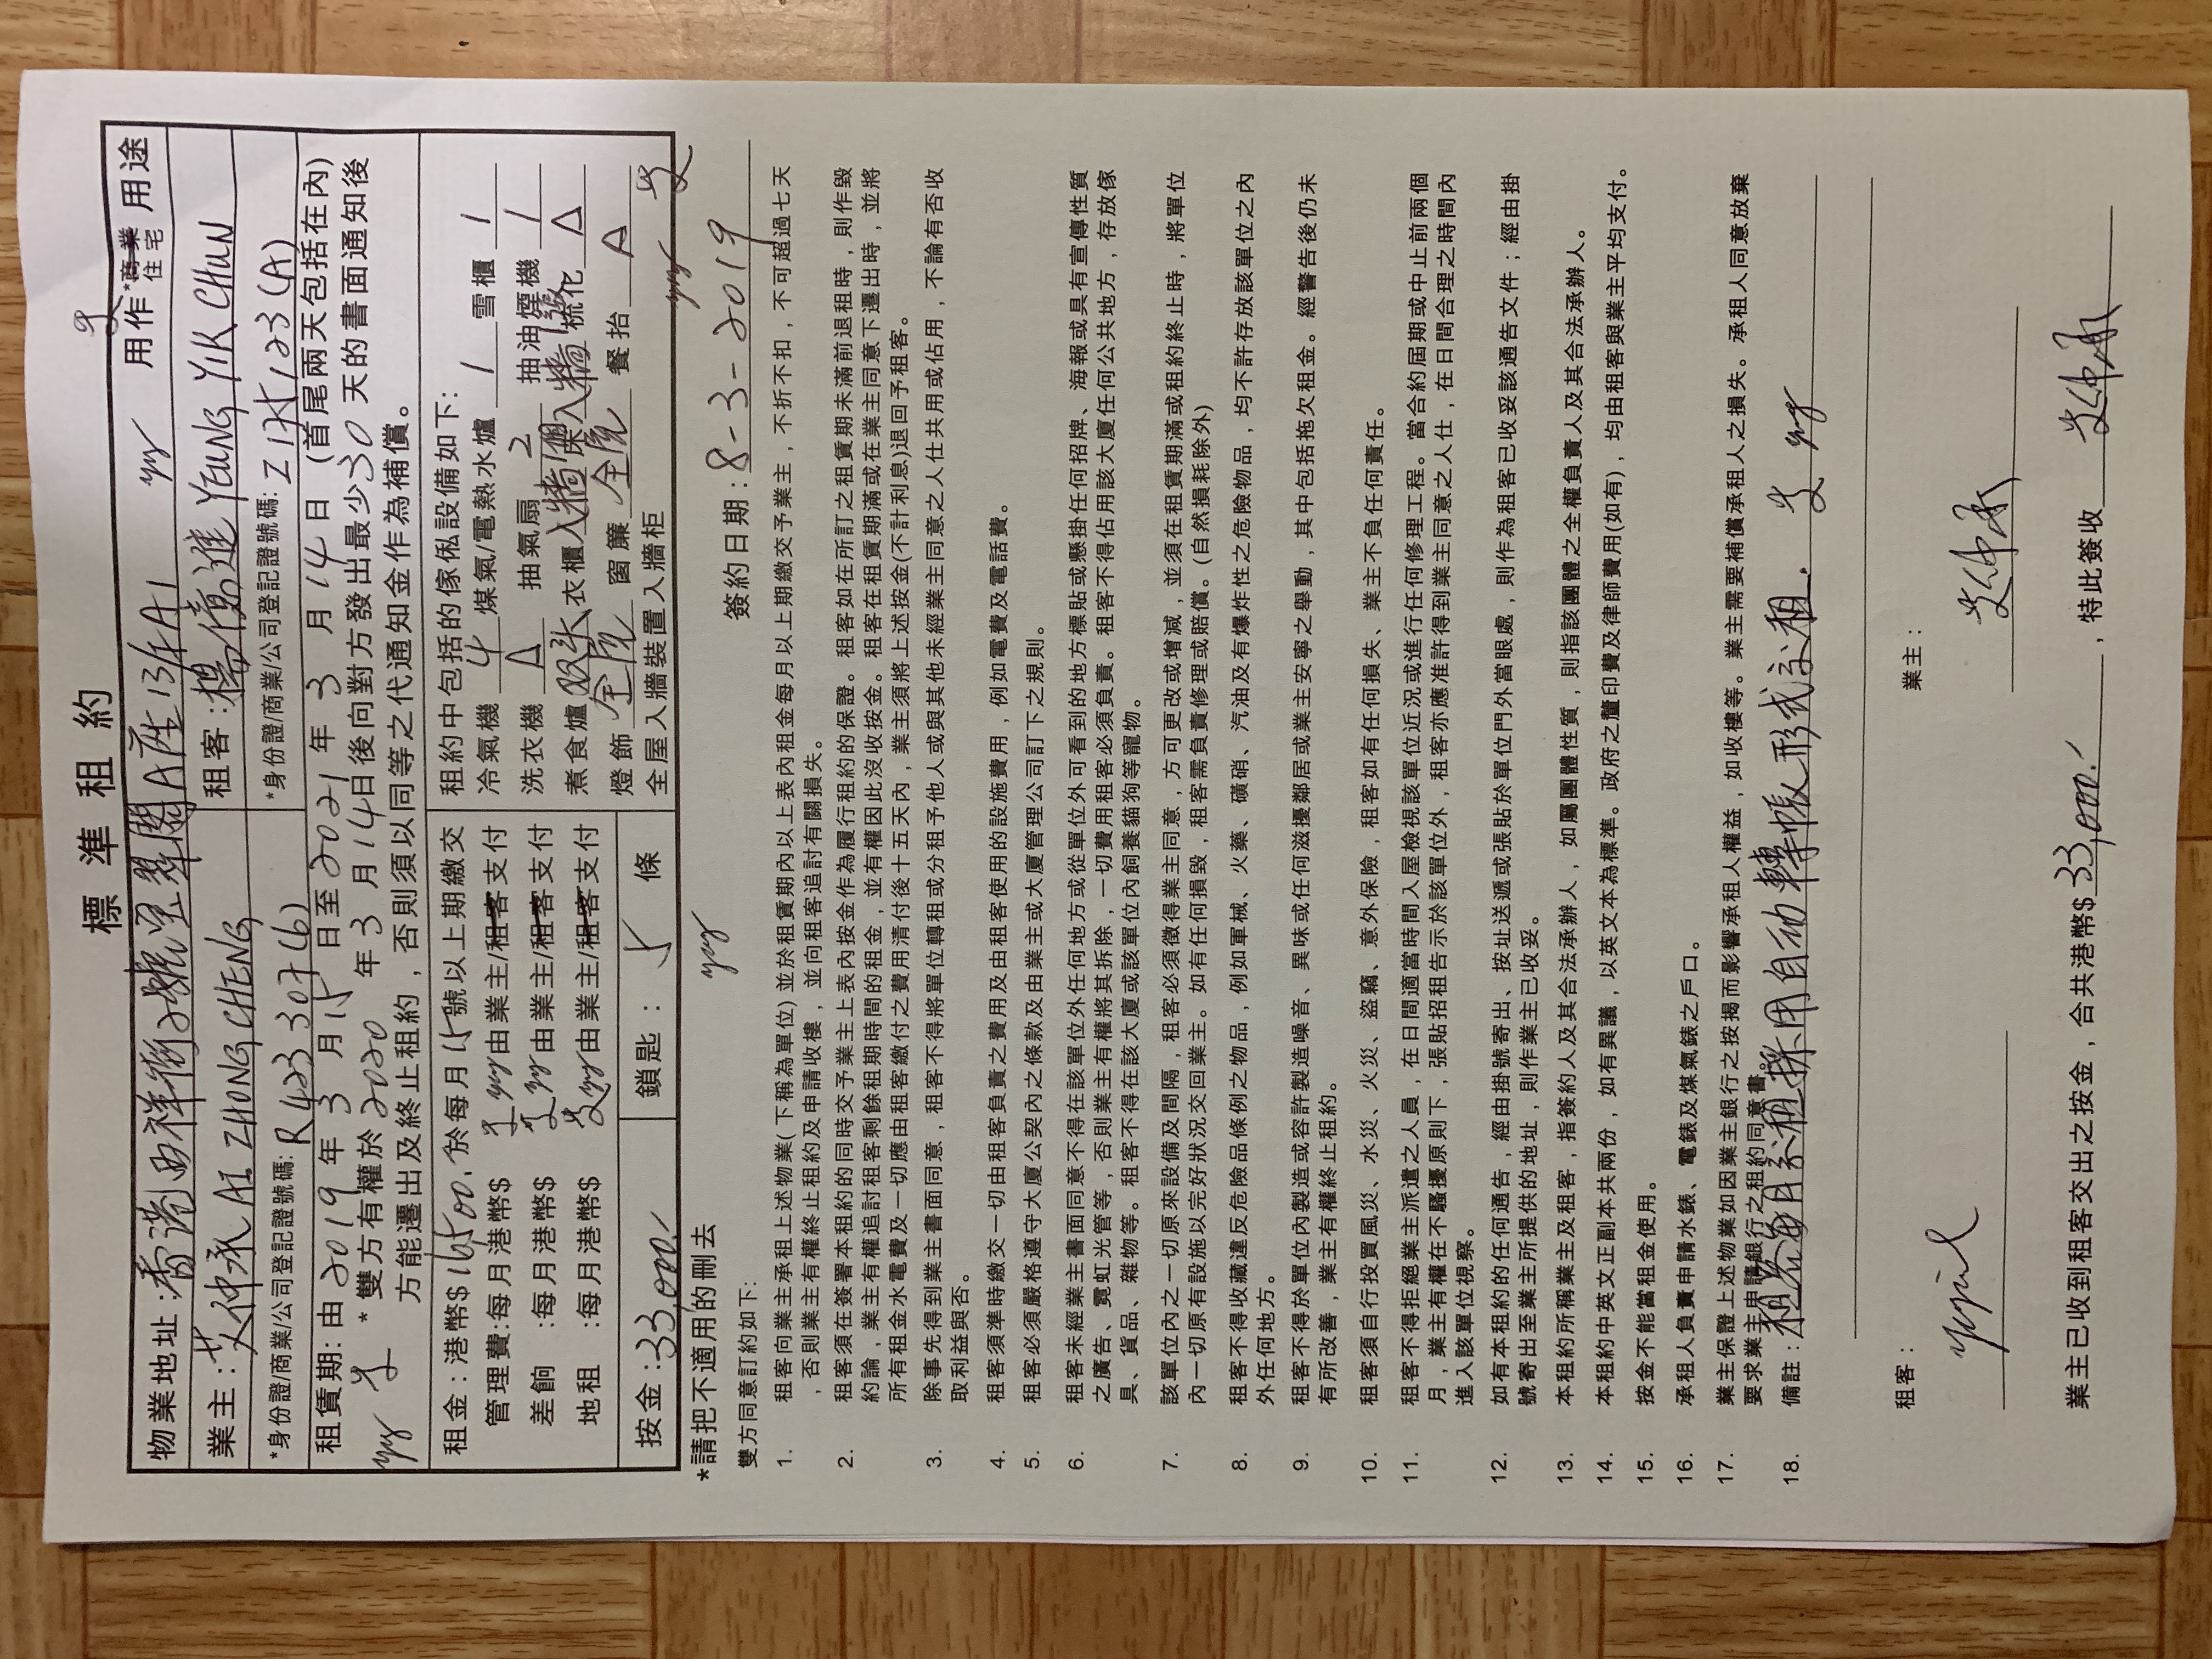 標 準 租 約
物業地址：香港西祥街2號翠瑩閣A座13/F A1 用作 *商業 住宅 用途
業主：艾仲承 AI ZHONG CHENG 租客：楊億進 YEUNG YIK CHUN
*身份證/商業/公司登記證號碼: *身份證/商業/公司登記證號碼:
租賃期：由 2019 年 3 月 15 日至 2021 年 3 月 14 日 (首尾兩天包括在內)
* 雙方有權於 2020 年 3 月 14 日後向對方發出最少 30 天的書面通知後
方能遷出及終止租約，否則須以同等之代通知金作為補償。
租金：港幣$ 16500. 於每月 15 號以上期繳交
管理費：每月港幣$ 由業主/租客支付
差餉 ：每月港幣$ 由業主/租客支付
地租 ：每月港幣$ 由業主/租客支付
按金：33,000. 鎖匙： 5 條
租約中包括的傢俬設備如下：
冷氣機 4 煤氣/電熱水爐 1 雪櫃 1
洗衣機 抽氣扇 2 抽油煙機 1
煮食爐 衣櫃 入牆 梳化
燈飾 全屋 窗簾 全屋 餐抬
全屋入牆裝置入牆柜
*請把不適用的刪去 簽約日期：8-3-2019
雙方同意訂約如下：
1. 租客向業主承租上述物業(下稱為單位)並於租賃期內以上表內租金每月以上期繳交予業主，不折不扣，不可超過七天
，否則業主有權終止租約及申請收樓，並向租客追討有關損失。
2. 租客須在簽署本租約的同時交予業主上表內按金作為履行租約的保證。租客如在所訂之租賃期未滿前退租時，則作毀
約論，業主有權追討租客剩餘租期時間的租金，並有權因此沒收按金。租客在租賃期滿或在業主同意下遷出時，並將
所有租金水電費及一切應由租客繳付之費用清付後十五天內，業主須將上述按金(不計利息)退回予租客。
3. 除事先得到業主書面同意，租客不得將單位轉租或分租予他人或與其他未經業主同意之人仕共用或佔用，不論有否收
取利益與否。
4. 租客須準時繳交一切由租客負責之費用及由租客使用的設施費用，例如電費及電話費。
5. 租客必須嚴格遵守大廈公契內之條款及由業主或大廈管理公司訂下之規則。
6. 租客未經業主書面同意不得在該單位外任何地方或從單位外可看到的地方標貼或懸掛任何招牌、海報或具有宣傳性質
之廣告、霓虹光管等，否則業主有權將其拆除，一切費用租客必須負責。租客不得佔用該大廈任何公共地方，存放傢
具、貨品、雜物等。租客不得在該大廈或該單位內飼養貓狗等寵物。
7. 該單位內之一切原來設備及間隔，租客必須徵得業主同意，方可更改或增減，並須在租賃期滿或租約終止時，將單位
內一切原有設施以完好狀況交回業主。如有任何損毀，租客需負責修理或賠償。(自然損耗除外)
8. 租客不得收藏違反危險品條例之物品，例如軍械、火藥、磺硝、汽油及有爆炸性之危險物品，均不許存放該單位之內
外任何地方。
9. 租客不得於單位內製造或容許製造噪音、異味或任何滋擾鄰居或業主安寧之舉動，其中包括拖欠租金。經警告後仍未
有所改善，業主有權終止租約。
10. 租客須自行投買風災、水災、火災、盜竊、意外保險，租客如有任何損失、業主不負任何責任。
11. 租客不得拒絕業主派遣之人員，在日間適當時間入屋檢視該單位近況或進行任何修理工程。當合約屆期或中止前兩個
月，業主有權在不騷擾原則下，張貼招租告示於該單位外，租客亦應准許得到業主同意之人仕，在日間合理之時間內
進入該單位視察。
12. 如有本租約的任何通告，經由掛號寄出、按址送遞或張貼於單位門外當眼處，則作為租客已收妥該通告文件；經由掛
號寄出至業主所提供的地址，則作業主已收妥。
13. 本租約所稱業主及租客，指簽約人及其合法承辦人，如屬團體性質，則指該團體之全權負責人及其合法承辦人。
14. 本租約中英文正副本共兩份，如有異議，以英文本為標準。政府之釐印費及律師費用(如有)，均由租客與業主平均支付。
15. 按金不能當租金使用。
16. 承租人負責申請水錶、電錶及煤氣錶之戶口。
17. 業主保證上述物業如因業主銀行之按揭而影響承租人權益，如收樓等。業主需要補償承租人之損失。承租人同意放棄
要求業主申請銀行之租約同意書。
18. 備註：租客每月交租採用自动轉帳形式交租.
租客： 業主：
業主已收到租客交出之按金，合共港幣$ 33,000. ，特此簽收 艾仲承